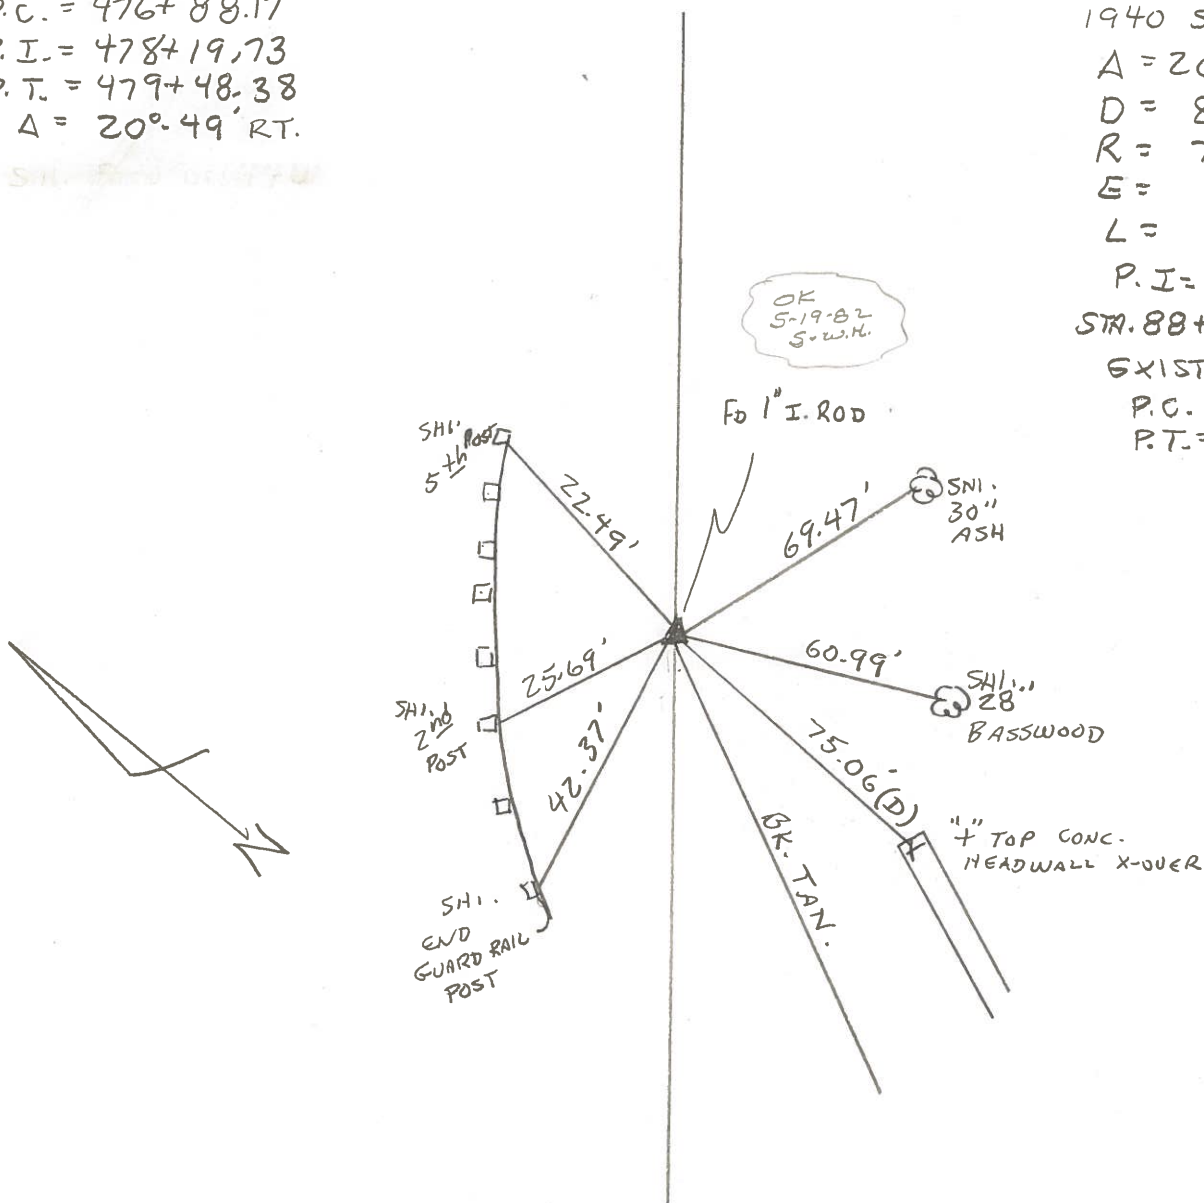 P.C. = 476+88.17
P.I. = 478+19.73
P.T. = 479+48.38
Δ = 20°-49' RT.
1940 S
Δ = 20
D = 8
R = 7
E =
L =
P.I =
STA. 88+
EXIST
P.C.
P.T. =
OK
5-19-82
S.W.H.
FD 1" I. ROD
SHI. POST
5th
22.49'
69.47'
SNI.
30"
ASH
25.69'
60.99'
SHI.
28"
BASSWOOD
SHI.
2nd
POST
42.37'
75.06'(D)
BK. TAN.
"+" TOP CONC.
HEADWALL X-OVER
SHI.
END
GUARD RAIL
POST
N